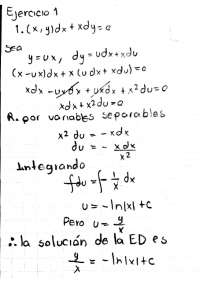 Ejercicio 1
1. (x,y)dx + xdy = 0
Sea
y = ux, dy = udx + xdu
(x - ux)dx + x(udx + xdu) = 0
xdx - uxdx + uxdx + x²du = 0
xdx + x²du = 0
R. por variables separables
x² du = - xdx
du = - xdx/x²
Integrando
∫du = ∫- 1/x dx
u = - ln|x| + c
Pero u = y/x
∴ la solución de la ED es
y/x = - ln|x| + c